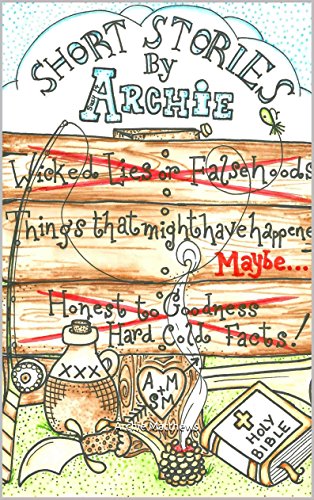 SHORT STORIES
BY
ARCHIE
Wicked Lies or Falsehoods
Things that might have happene
Maybe...
Honest to Goodness
Hard Cold Facts!
XXX
A+M
SM
Archie Matthews
HOLY
BIBLE